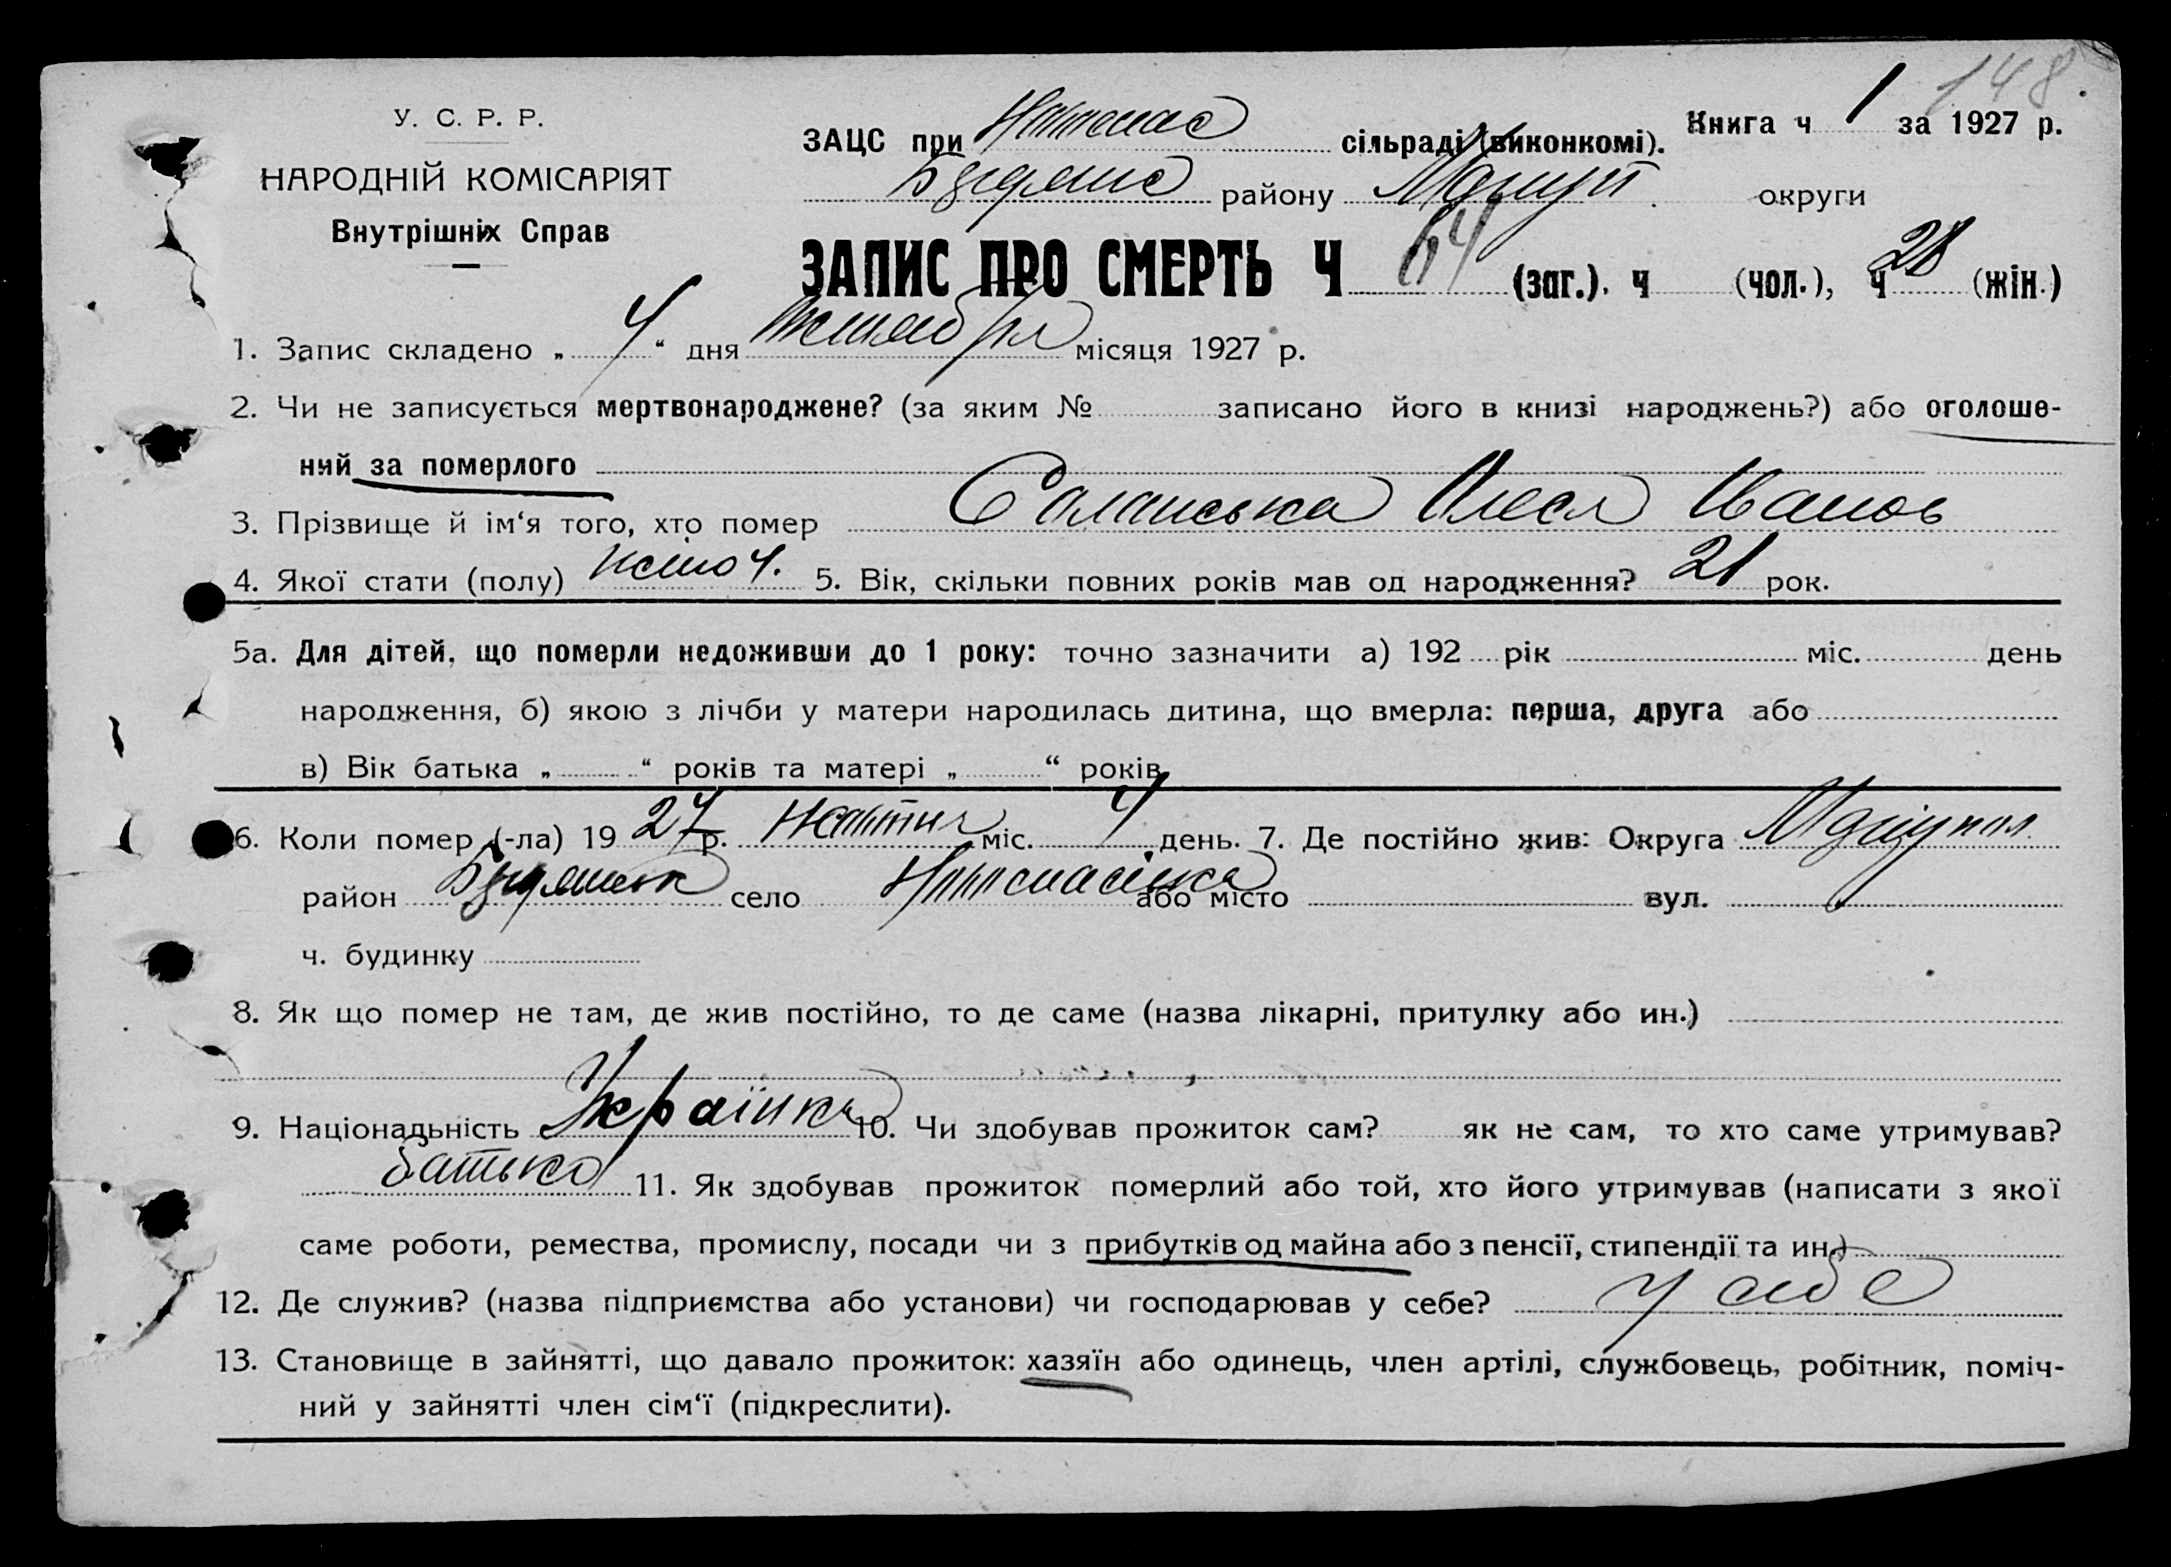 148.
У. С. Р. Р.
НАРОДНІЙ КОМІСАРІЯТ
Внутрішніх Справ
Книга ч 1 за 1927 р.
ЗАЦС при сільраді (виконкомі).
району Маріуп. округи
ЗАПИС ПРО СМЕРТЬ Ч 64 (заг.), ч (чол.), ч 28 (жін.)
1. Запис складено „ 4 “ дня місяця 1927 р.
2. Чи не записується мертвонароджене? (за яким № записано його в книзі народжень?) або оголоше-
ний за померлого
3. Прізвище й ім‘я того, хто помер Саланська Олеся Іванов
4. Якої стати (полу) жіноч. 5. Вік, скільки повних років мав од народження? 21 рок.
5а. Для дітей, що померли недоживши до 1 року: точно зазначити а) 192 рік міс. день
народження, б) якою з лічби у матери народилась дитина, що вмерла: перша, друга або
в) Вік батька „ “ років та матері „ “ років
6. Коли помер (-ла) 1927 р. Жовтня міс. 4 день. 7. Де постійно жив: Округа Маріупол.
район село або місто вул.
ч. будинку
8. Як що помер не там, де жив постійно, то де саме (назва лікарні, притулку або ин.)
9. Національність Українка 10. Чи здобував прожиток сам? як не сам, то хто саме утримував?
батько 11. Як здобував прожиток померлий або той, хто його утримував (написати з якої
саме роботи, ремества, промислу, посади чи з прибутків од майна або з пенсії, стипендії та ин.)
12. Де служив? (назва підприємства або установи) чи господарював у себе? у себе
13. Становище в зайнятті, що давало прожиток: хазяїн або одинець, член артілі, службовець, робітник, поміч-
ний у зайнятті член сім‘ї (підкреслити).